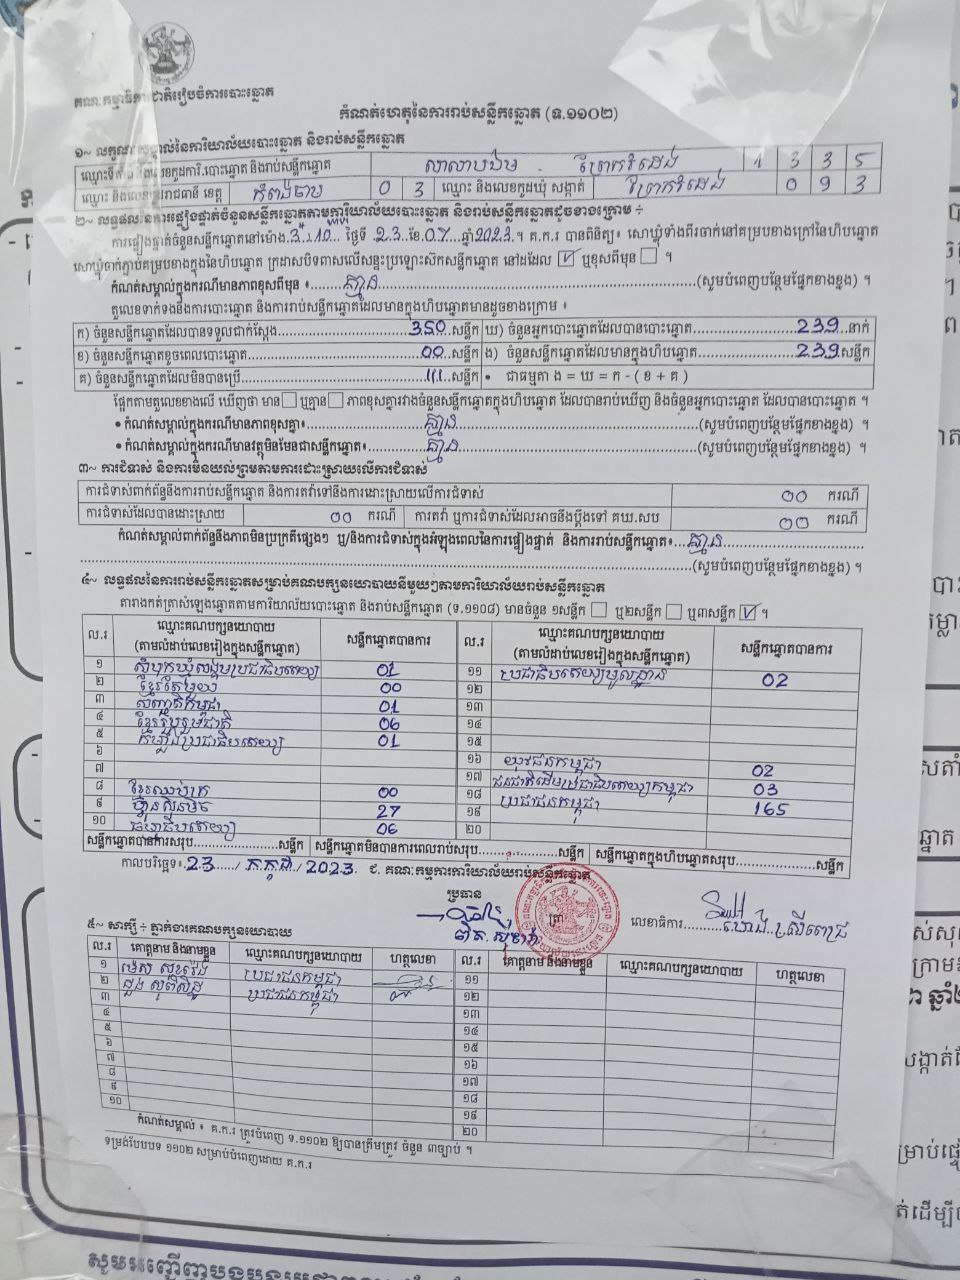 គណៈកម្មាធិការជាតិរៀបចំការបោះឆ្នោត
កំណត់ហេតុនៃការរាប់សន្លឹកឆ្នោត (ទ.១១០២)
១~ លក្ខណៈសម្គាល់នៃការិយាល័យបោះឆ្នោត និងរាប់សន្លឹកឆ្នោត
ឈ្មោះទីតាំង និងលេខកូដការិ.បោះឆ្នោត និងរាប់សន្លឹកឆ្នោត 1 3 3 5
ឈ្មោះ និងលេខកូដរាជធានី ខេត្ត កំពង់ចាម 0 3 ឈ្មោះ និងលេខកូដឃុំ សង្កាត់ 0 9 3
២~ លទ្ធផលនៃការផ្ទៀងផ្ទាត់ចំនួនសន្លឹកឆ្នោតតាមការិយាល័យបោះឆ្នោត និងរាប់សន្លឹកឆ្នោតដូចខាងក្រោម ÷
ការផ្ទៀងផ្ទាត់ចំនួនសន្លឹកឆ្នោតនៅម៉ោង 3:10 ថ្ងៃទី 23 ខែ 07 ឆ្នាំ 2023 ។ គ.ក.រ បានពិនិត្យ៖ សោឃ្លុំទាំងពីរចាក់នៅគម្របខាងក្រៅនៃហិបឆ្នោត
សោឃ្លុំចាក់ភ្ជាប់គម្របខាងក្នុងនៃហិបឆ្នោត ក្រដាសបិទពាសលើសន្ទះប្រឡោះស៊កសន្លឹកឆ្នោត នៅដដែល ☑ ឬខុសពីមុន ☐ ។
កំណត់សម្គាល់ក្នុងករណីមានភាពខុសពីមុន ៖ គ្មាន (សូមបំពេញបន្ថែមផ្នែកខាងខ្នង) ។
តួលេខទាក់ទងនឹងការបោះឆ្នោត និងការរាប់សន្លឹកឆ្នោតដែលមានក្នុងហិបឆ្នោតមានដូចខាងក្រោម ៖
ក) ចំនួនសន្លឹកឆ្នោតដែលបានទទួលជាក់ស្តែង 350 សន្លឹក ឃ) ចំនួនអ្នកបោះឆ្នោតដែលបានបោះឆ្នោត 239 នាក់
ខ) ចំនួនសន្លឹកឆ្នោតខូចពេលបោះឆ្នោត 00 សន្លឹក ង) ចំនួនសន្លឹកឆ្នោតដែលមានក្នុងហិបឆ្នោត 239 សន្លឹក
គ) ចំនួនសន្លឹកឆ្នោតដែលមិនបានប្រើ 111 សន្លឹក • ជាធម្មតា ង = ឃ = ក - ( ខ + គ )
ផ្អែកតាមតួលេខខាងលើ ឃើញថា មាន ☐ ឬគ្មាន ☐ ភាពខុសគ្នារវាងចំនួនសន្លឹកឆ្នោតក្នុងហិបឆ្នោត ដែលបានរាប់ឃើញ និងចំនួនអ្នកបោះឆ្នោត ដែលបានបោះឆ្នោត ។
• កំណត់សម្គាល់ក្នុងករណីមានភាពខុសគ្នា៖ គ្មាន (សូមបំពេញបន្ថែមផ្នែកខាងខ្នង) ។
• កំណត់សម្គាល់ក្នុងករណីមានវត្ថុមិនមែនជាសន្លឹកឆ្នោត៖ គ្មាន (សូមបំពេញបន្ថែមផ្នែកខាងខ្នង) ។
៣~ ការជំទាស់ និងការមិនយល់ព្រមតាមការដោះស្រាយលើការជំទាស់
ការជំទាស់ពាក់ព័ន្ធនឹងការរាប់សន្លឹកឆ្នោត និងការតវ៉ាទៅនឹងការដោះស្រាយលើការជំទាស់ 00 ករណី
ការជំទាស់ដែលបានដោះស្រាយ 00 ករណី ការតវ៉ា ឬការជំទាស់ដែលអាចនឹងប្តឹងទៅ គឃ.សប 00 ករណី
កំណត់សម្គាល់ពាក់ព័ន្ធនឹងភាពមិនប្រក្រតីផ្សេងៗ ឬ/និងការជំទាស់ក្នុងអំឡុងពេលនៃការផ្ទៀងផ្ទាត់ និងការរាប់សន្លឹកឆ្នោត៖ គ្មាន
(សូមបំពេញបន្ថែមផ្នែកខាងខ្នង) ។
៤~ លទ្ធផលនៃការរាប់សន្លឹកឆ្នោតសម្រាប់គណបក្សនយោបាយនីមួយៗតាមការិយាល័យរាប់សន្លឹកឆ្នោត
តារាងកត់ត្រាសំឡេងឆ្នោតតាមការិយាល័យបោះឆ្នោត និងរាប់សន្លឹកឆ្នោត (ទ.១១០៨) មានចំនួន ១សន្លឹក ☐ ឬ២សន្លឹក ☐ ឬ៣សន្លឹក ☑ ។
ល.រ ឈ្មោះគណបក្សនយោបាយ (តាមលំដាប់លេខរៀងក្នុងសន្លឹកឆ្នោត) សន្លឹកឆ្នោតបានការ ល.រ ឈ្មោះគណបក្សនយោបាយ (តាមលំដាប់លេខរៀងក្នុងសន្លឹកឆ្នោត) សន្លឹកឆ្នោតបានការ
១ សំបុកឃ្មុំសង្គមប្រជាធិបតេយ្យ 01 ១១ ប្រជាធិបតេយ្យមូលដ្ឋាន 02
២ ខ្មែរតែមួយ 00 ១២
៣ សញ្ជាតិកម្ពុជា 01 ១៣
៤ ខ្មែររួបរួមជាតិ 06 ១៤
៥ កម្លាំងប្រជាធិបតេយ្យ 01 ១៥
៦ ១៦ យុវជនកម្ពុជា 02
៧ ១៧ ជនជាតិដើមប្រជាធិបតេយ្យកម្ពុជា 03
៨ ខ្មែរឈប់ក្រ 00 ១៨ ប្រជាជនកម្ពុជា 165
៩ ហ្វ៊ុនស៊ិនប៉ិច 27 ១៩
១០ ធម្មាធិបតេយ្យ 06 ២០
សន្លឹកឆ្នោតបានការសរុប សន្លឹក សន្លឹកឆ្នោតមិនបានការពេលរាប់សរុប សន្លឹក សន្លឹកឆ្នោតក្នុងហិបឆ្នោតសរុប សន្លឹក
កាលបរិច្ឆេទ៖ 23 / កក្កដា / 2023 ជ. គណៈកម្មការការិយាល័យរាប់សន្លឹកឆ្នោត
ប្រធាន
ត្រា លេខាធិការ
៥~ សាក្សី ÷ ភ្នាក់ងារគណបក្សនយោបាយ
ល.រ គោត្តនាម និងនាមខ្លួន ឈ្មោះគណបក្សនយោបាយ ហត្ថលេខា ល.រ គោត្តនាម និងនាមខ្លួន ឈ្មោះគណបក្សនយោបាយ ហត្ថលេខា
១ ប្រជាជនកម្ពុជា ១១
២ ប្រជាជនកម្ពុជា ១២
៣ ១៣
៤ ១៤
៥ ១៥
៦ ១៦
៧ ១៧
៨ ១៨
៩ ១៩
១០ ២០
កំណត់សម្គាល់ ៖ គ.ក.រ ត្រូវបំពេញ ទ.១១០២ ឱ្យបានត្រឹមត្រូវ ចំនួន ៣ច្បាប់ ។
ទម្រង់បែបបទ ១១០២ សម្រាប់បំពេញដោយ គ.ក.រ